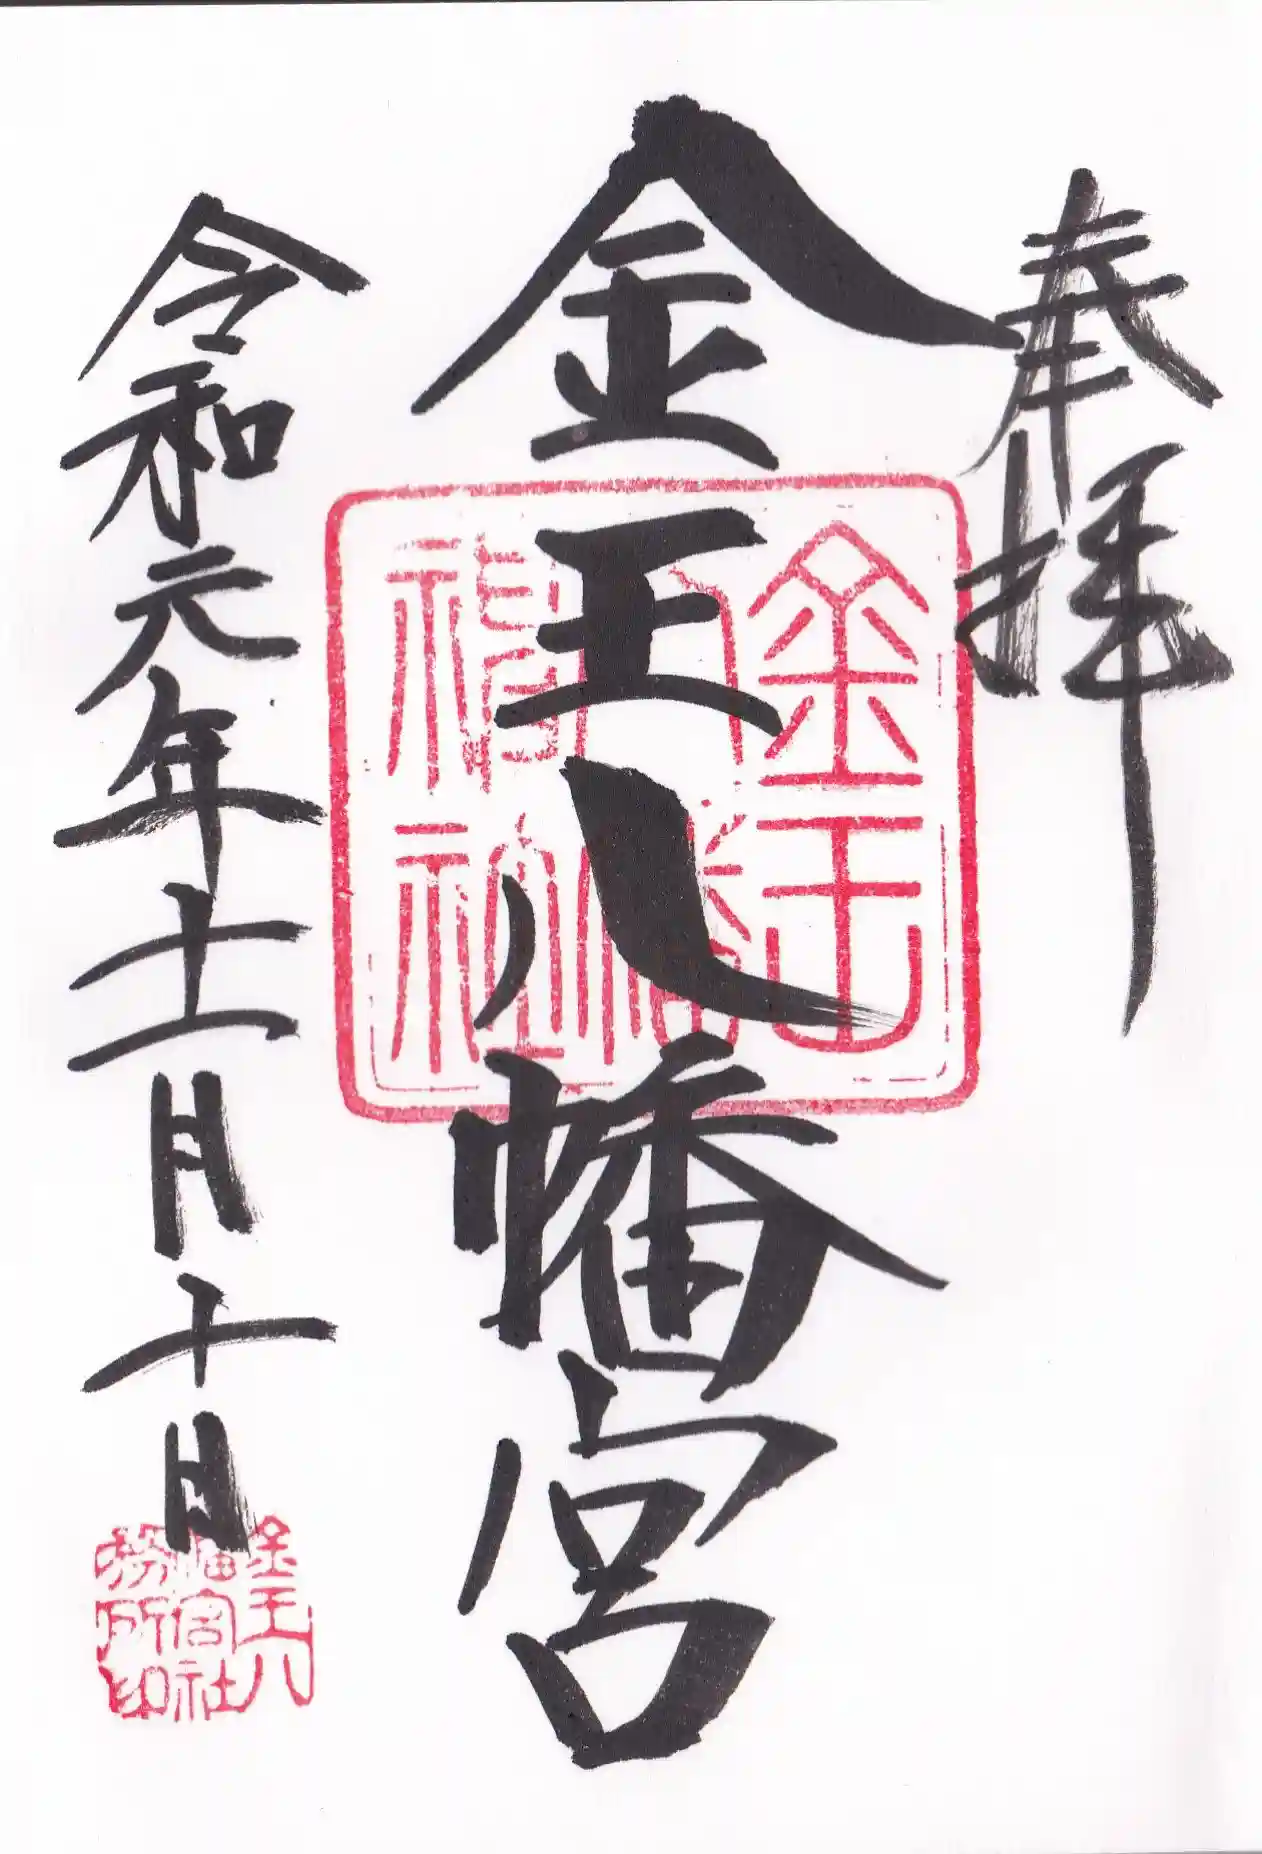 奉拝
金王八幡宮
令和元年十一月十日
金王
八幡
神社
金王八
幡宮社
務所印